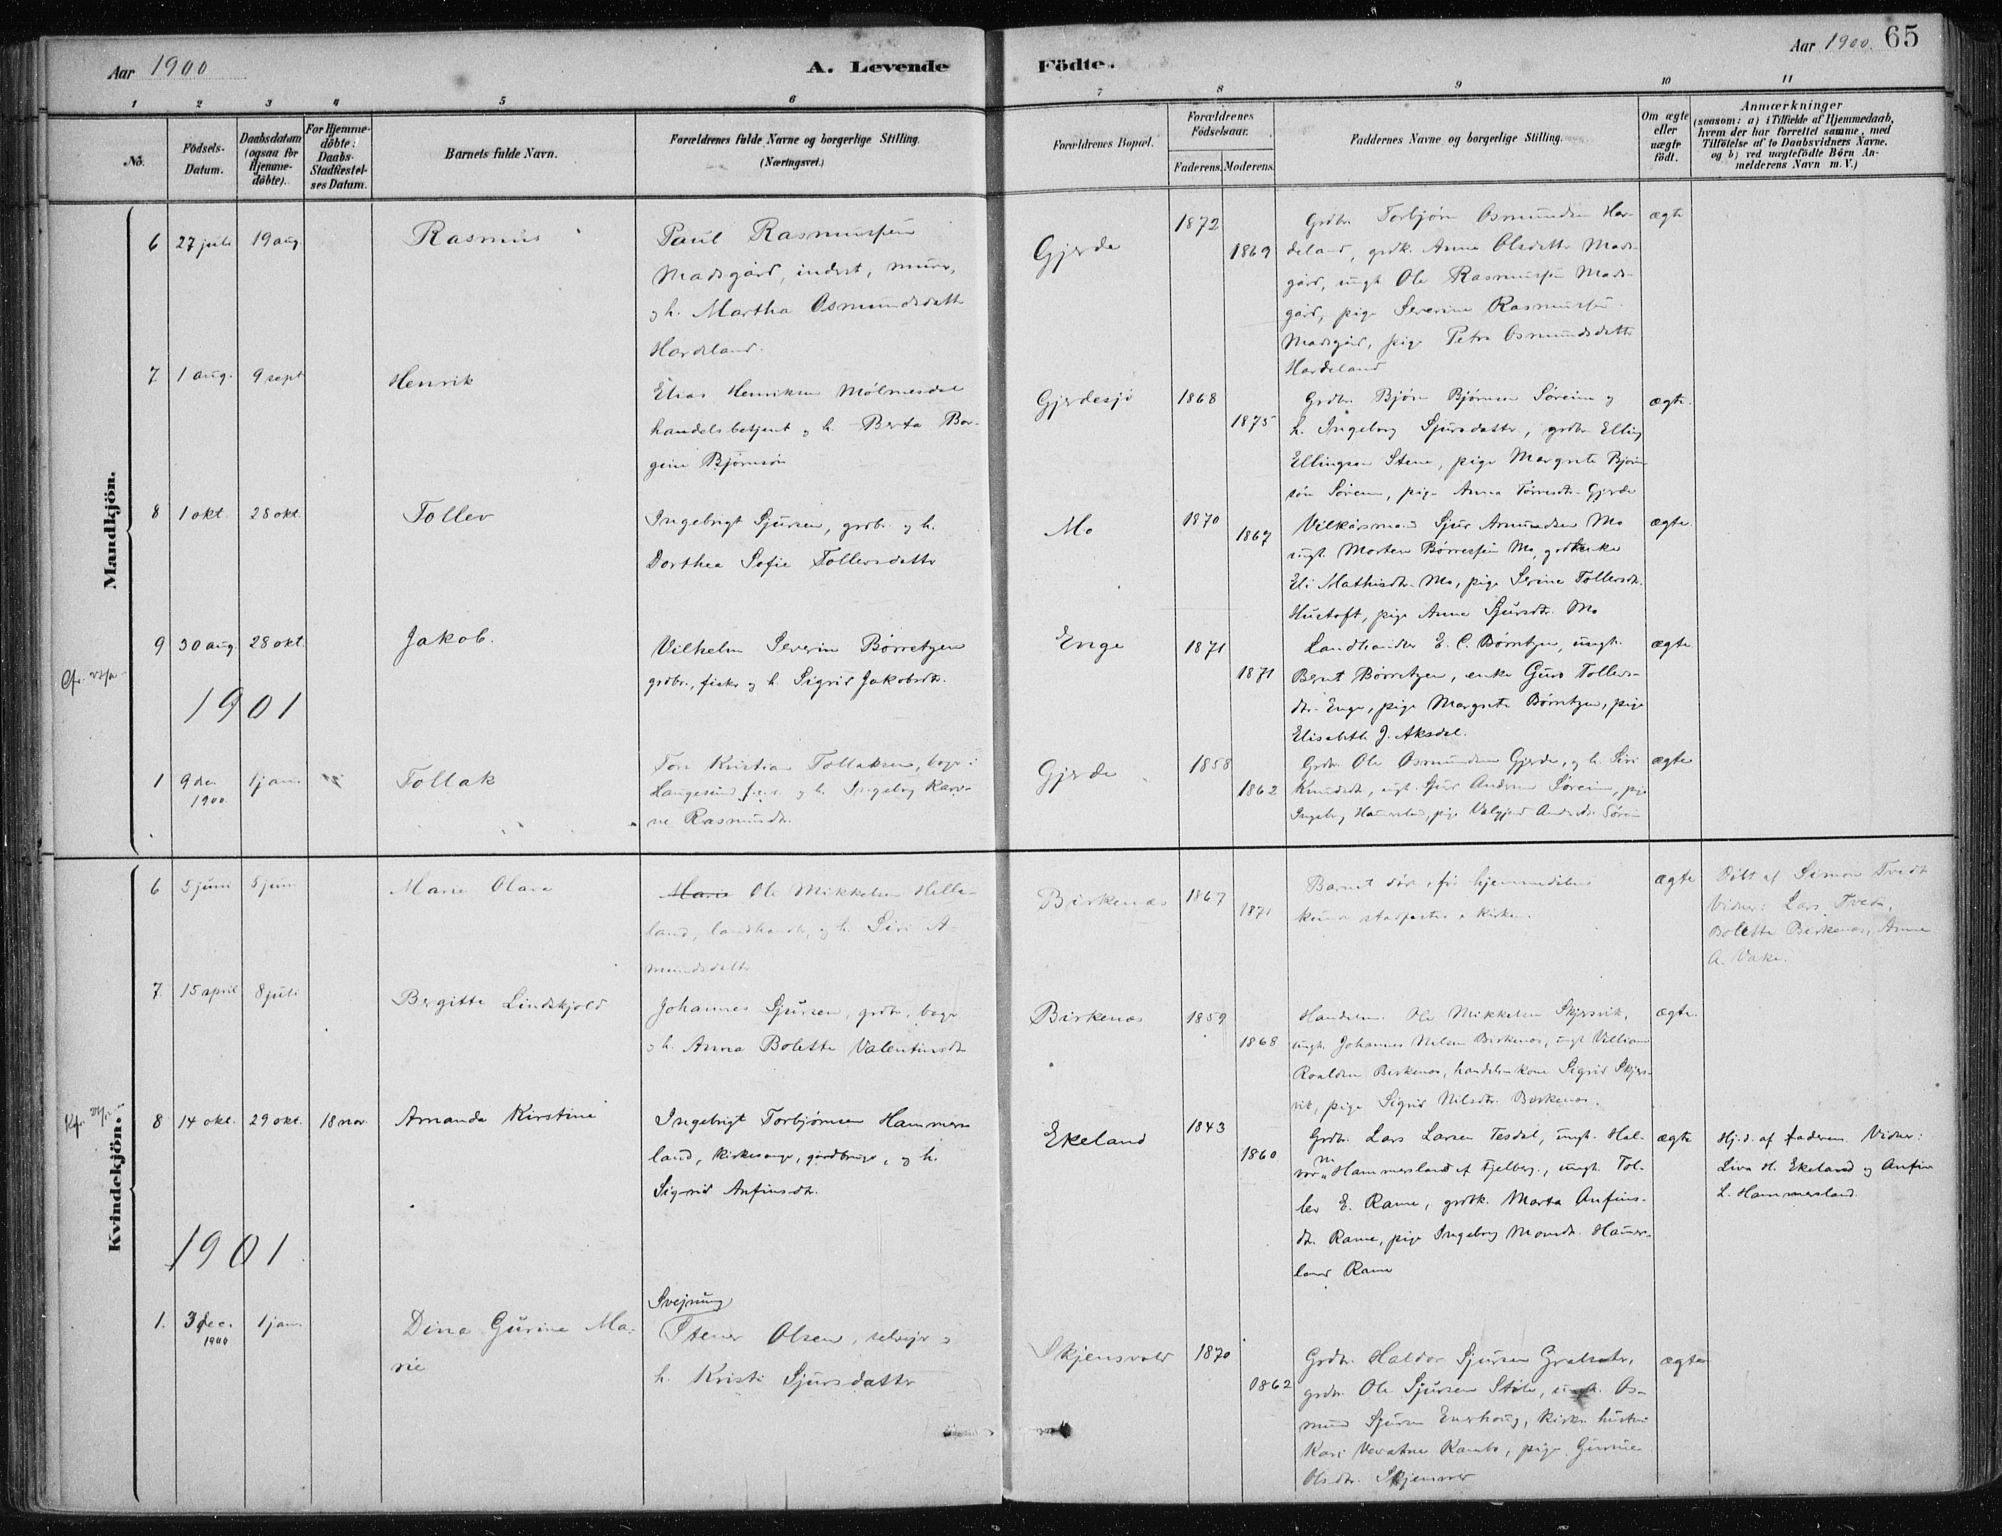 Aar 1900
A. Levende
Födte.
Aar 1900. 65
1 2 3 4 5 6 7 8 9 10 11
Nö.
Födsels-
Datum.
Daabsdatum
(ogsaa for
Hjemme-
döbte).
For Hjemme-
döbte:
Daabs-
Stadfæstel-
ses Datum.
Barnets fulde Navn.
Forældrenes fulde Navne og borgerlige Stilling
(Næringsvei.)
Forældrenes Bopæl.
Forældrenes
Födselsaar.
Faderens. Moderens.
Faddernes Navne og borgerlige Stilling.
Om ægte
eller
uægte
födt.
Anmærkninger
(saasom: a) i Tilfælde af Hjemmedaab,
hvem der har forrettet samme, med
Tilföielse af to Daabsvidners Navne,
og b) ved uægtefödte Börn An-
melderens Navn m. V.)
Mandkjön.
6 27 juli 19 aug. Rasmus
Paul Rasmussen
Madsgård, inderst, murer,
og h. Martha Osmundsdatter
Hardeland.
Gjerde 1872 1869
Grdbr Torbjörn Osmundsen Har-
deland, grdk. Anna Olsdatter Mads-
gård, ungk Ole Rasmussen Mads-
gård, pige Severine Rasmussen
Madsgård, pige Petra Osmundsdatter
Hardeland
ægte
7. 1 aug. 9 sept Henrik
Elias Henriksen Mölmesdal
handelsbetjent og h. Berta Bor-
gine Björnsön
Gjerdesjö 1868 1875
Grdbr. Björn Björnsen Söreim og
h. Ingeborg Sjursdatter, grdbr Elling
Ellingsen Stene, pige Margrete Björn
sön Söreim, pige Anna Torresdtr. Gjerde
ægte.
8 1 okt. 28 okt. Tollev
Ingebrigt Sjursen, grdb. og h.
Dorthea Sofie Tollevsdatter
Mo 1870 1867
Vilkårsmand Sjur Amundsen Mo
ungk. Morten Börresen Mo, grdb enke
Eli Mathisdtr. Mo, pige Serine Tollevsdtr.
Hustoft, pige Anna Sjursdtr. Mo
ægte.
9 30 aug. 28 okt. Jakob.
Vilhelm Severin Börretzen
grdbr., fisker og h. Sigrid Jakobsdtr.
Enge 1871 1871
Landhandler E. C. Börretzen, ungk.
Bernt Börretzen, enke Guro Tollevs-
dtr. Enge, pige Margrete Börretzen, pige
Elisabeth J. Aksdal.
ægte
1901
1 9 dec 1900. 1 jan. Tollak
Tore Kristian Tollaksen, bager i
Haugesund f.e.s. og h. Ingeborg Karo-
ne Rasmusdtr.
Gjerde 1858 1862
Grdbr. Ole Osmundsen Gjerde, og h. Siri
Knudsdtr, ungk. Sjur Andersen Söreim, pige
Ingeborg pige Valgjerd Andersdtr. Söreim
ægte
Kvindekjön.
6 5 juni 5 juni Marie Olava
Marie Ole Mikkelsen Helle-
land, landhandler, og h. Siri A-
mundsdatter
Birkenæs 1867 1871
Barnet döde, för hjemmedåben
kunde stadfæstes i kirken.
ægte
Döbt af Simon Tvedt
Vidner: Lars Tvedt,
Bolette Birkenæs, Anna
A. Vake.
7. 15 april 8 juli Bergitte Lindskjold
Johannes Sjursen, grdbr, bager
og h. Anna Bolette Valentinsdtr
Birkenæs 1859 1868
Handelsm. Ole Mikkelsen Skjersvik,
ungk. Johannes Nilsen Birkenæs, ungk Villiam
Roaldsen Birkenæs, handelsm kone Sigrid Skjers-
vik, pige Sigrid Nilsdtr. Birkenæs.
ægte.
8 14 okt. 29 okt. 18 nov. Amanda Kirstine
Ingebrigt Torbjörnsen Hammers
land, kirkesanger, gårdbruger, og h.
Sigrid Anfinsdtr.
Ekeland 1843 1860
Grdbr. Lars Larsen Tesdal, ungk. Hal-
vor M Hammersland af Fjelberg., ungk. Tol-
lev E. Rame, grdk. Marta Anfins-
dtr. Rame, pige Ingeborg Monsdtr. Hamers-
land Rame
ægte
Hj.d. af faderen. Vidner:
Liva H. Ekeland og Anfin
L. Hammersland.
1901
1. 3 dec. 1900 1 jan. Dina Gurine Ma-
rie
Svejnung
Stener Olsen, selvejer og
h. Kristi Sjursdatter
Skjensvold 1870 1862
Grdbr. Haldor Sjursen
grdbr. Ole Sjursen Stöle, ungk. Os-
mund Sjursen Enerhaug, kirkes. hustru
Kari Vevatne Kambo, pige Gurine
Olsdtr.
ægte